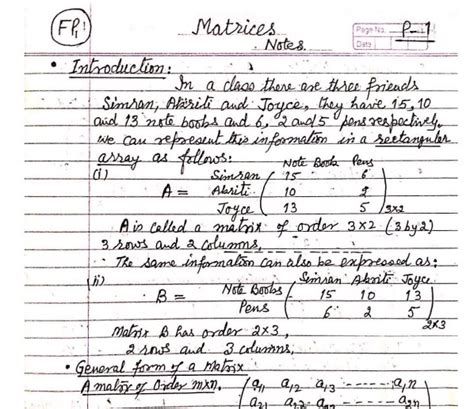 FP1 Matrices Page No. P-1
Notes. Date
• Introduction:
In a class there are three friends
Simran, Akriti and Joyce, they have 15, 10
and 13 note books and 6, 2 and 5 pens respectively,
we can represent this information in a rectangular
array as follows:
(i) Note Books Pens
Simran 15 6
A = Akriti 10 2
Joyce 13 5 3x2
A is called a matrix of order 3x2 (3 by 2)
3 rows and 2 columns,
The same information can also be expressed as:
ii) Simran Akriti Joyce
B = Note Books 15 10 13
Pens 6 2 5 2x3
Matrix B has order 2x3,
2 rows and 3 columns,
• General form of a Matrix
A matrix of order mxn. a11 a12 a13 ------ a1n
a21 a22 ------ a2n